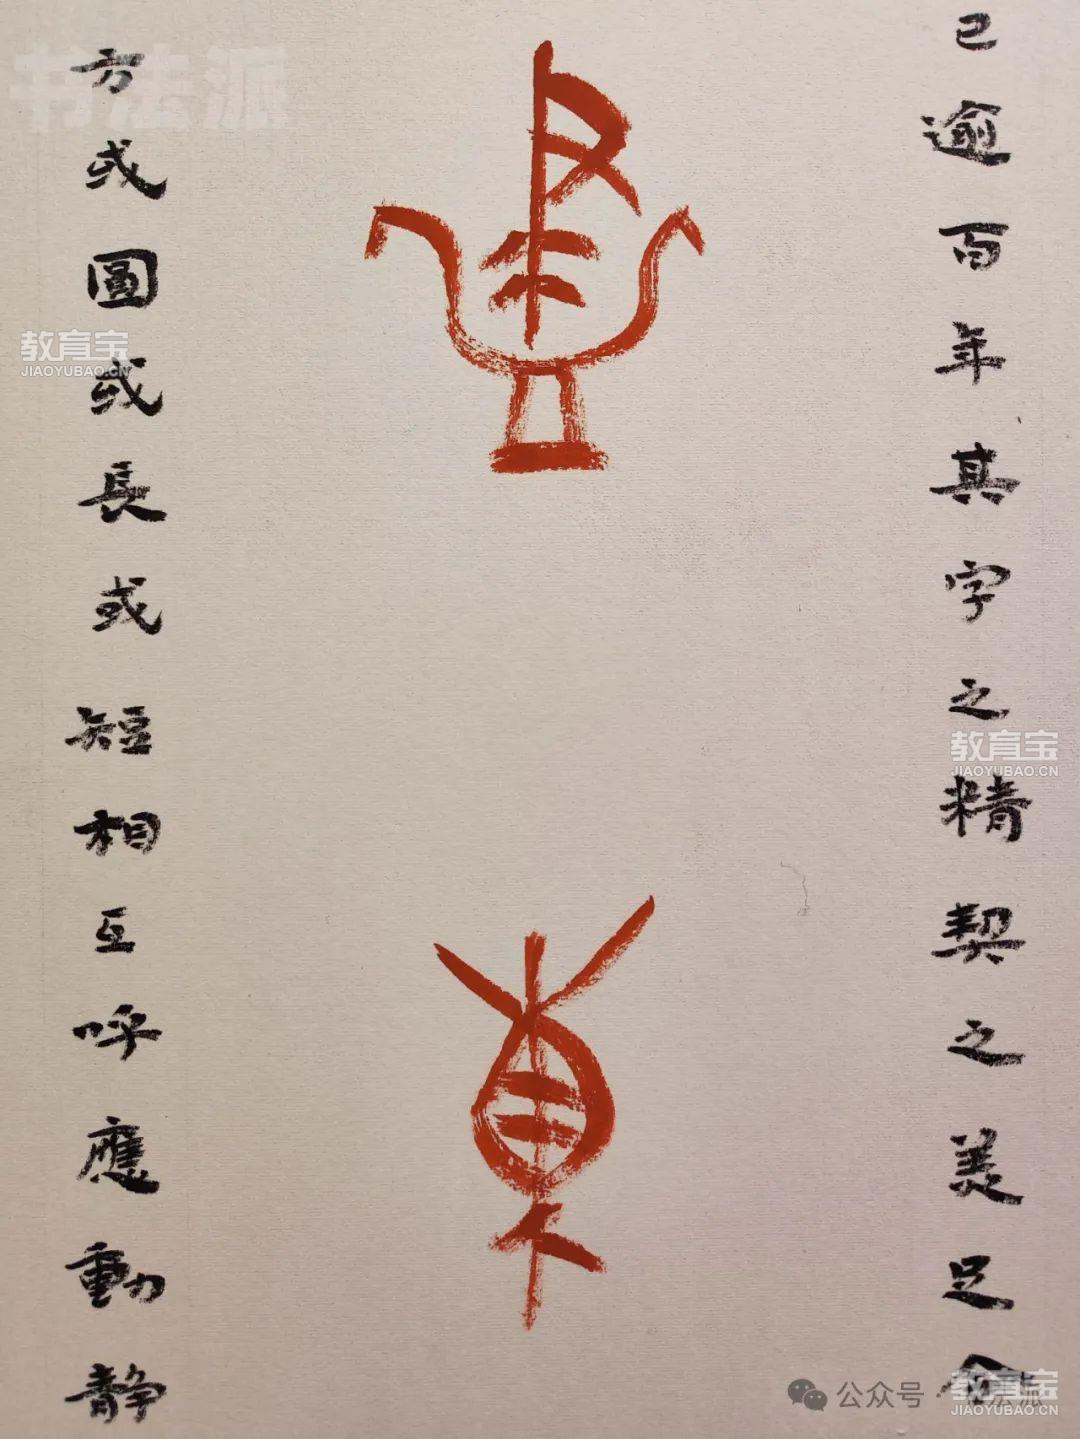 已逾百年其字之精契之美足令
盡
東
方或圖或長或短相互呼應動靜
书法派
教育宝
JIAOYUBAO.CN
教育宝
JIAOYUBAO.CN
公众号·书法派
教育宝
JIAOYUBAO.CN